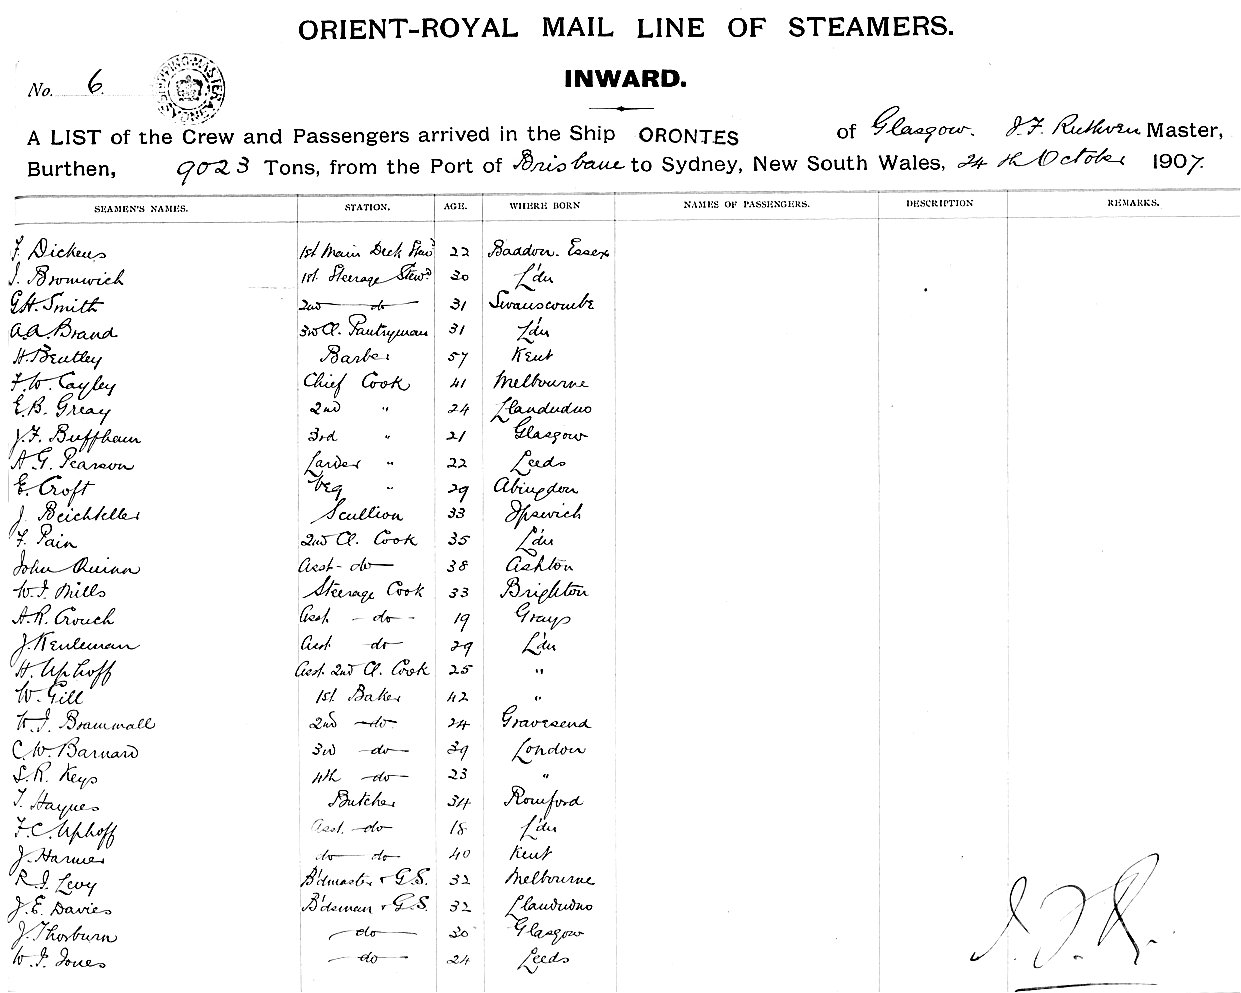 ORIENT-ROYAL MAIL LINE OF STEAMERS.
No. 6.
INWARD.
A LIST of the Crew and Passengers arrived in the Ship ORONTES of Glasgow. J.F. Ruthven Master,
Burthen, 9023 Tons, from the Port of Brisbane to Sydney, New South Wales, 24th October 1907.
SEAMEN'S NAMES. STATION. AGE. WHERE BORN NAMES OF PASSENGERS. DESCRIPTION REMARKS.
F. Dickens 1st Main Deck Stewd 22 Baddow. Essex
J. Bromwich 1st. Steerage Stewd 30 L'dn
G.H. Smith 2nd — do — 31 Swanscombe
A.A. Brand 3rd Cl. Pantryman 31 L'dn
H. Bentley Barber 57 Kent
F.W. Cayley Chief Cook 41 Melbourne
E.B. Greay 2nd " 24 Llandudno
J.F. Buffham 3rd " 21 Glasgow
A.G. Pearson Larder " 22 Leeds
E. Croft Veg " 29 Abingdon
J. Scullion 33 Ipswich
F. Pain 2nd Cl. Cook 35 L'dn
John Quinn Asst - do — 38 Ashton
W.J. Mills Steerage Cook 33 Brighton
A.R. Crouch Asst - do - 19 Grays
J. Keuleman Asst do 29 L'dn
H. Uphoff Asst. 2nd Cl. Cook 25 "
W. Gill 1st. Baker 42 "
W.J. Brammall 2nd — do - 24 Gravesend
C.W. Barnard 3rd — do — 39 London
S.R. Keys 4th — do — 23 "
T. Haynes Butcher 34 Romford
F.C. Uphoff Asst. — do 18 L'dn
J. Harmer do — do — 40 Kent
R.J. Levy B'dmaster & G.S. 32 Melbourne
J.E. Davies B'dsman & G.S. 32 Llandudno
J. Thorburn — do — 30 Glasgow
W.J. Jones — do — 24 Leeds
J.F.R.